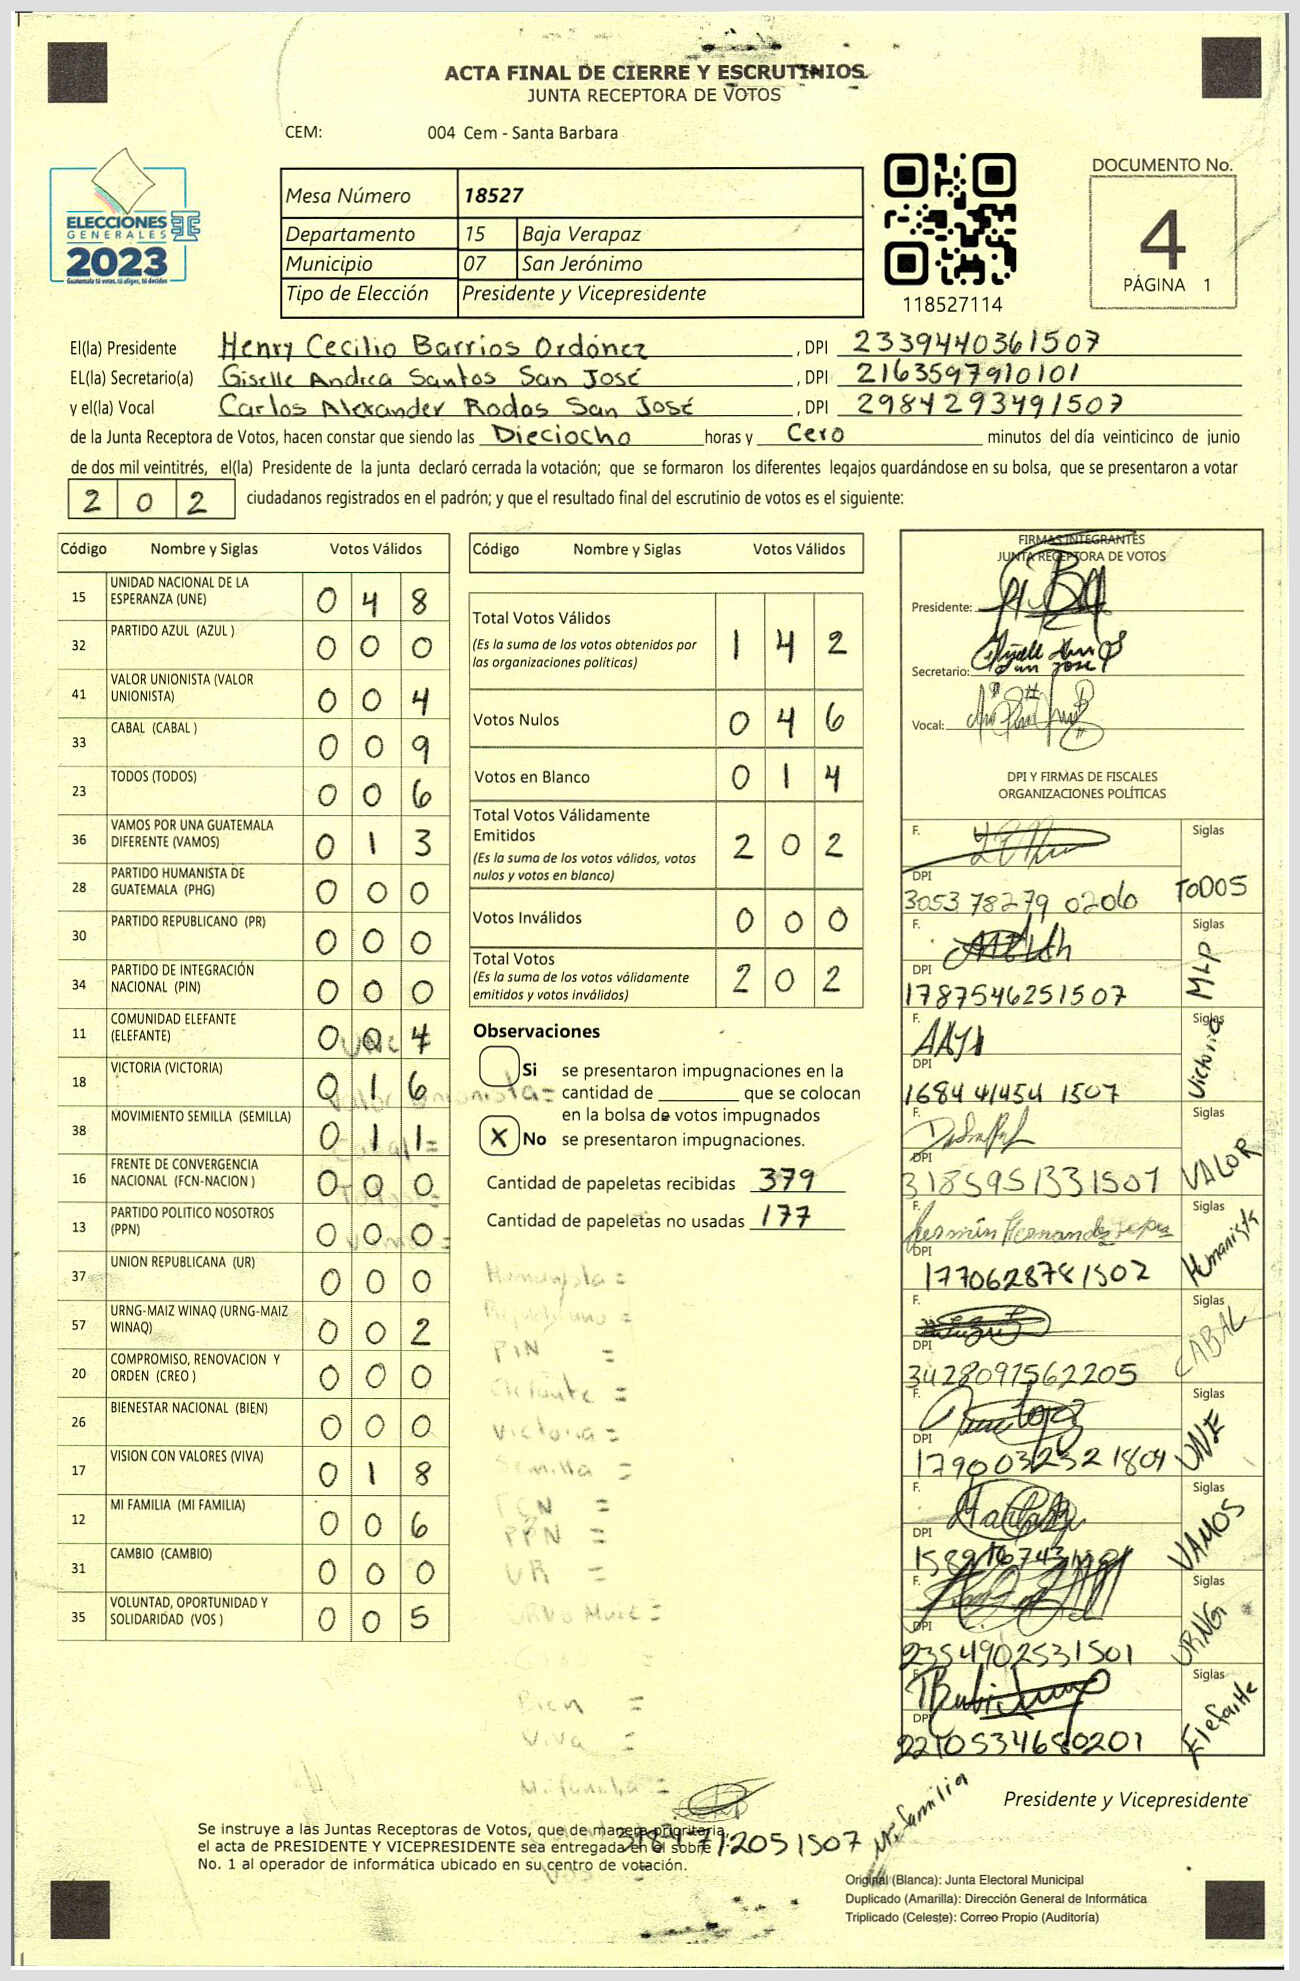 ACTA FINAL DE CIERRE Y ESCRUTINIOS
JUNTA RECEPTORA DE VOTOS
CEM: 004 Cem - Santa Barbara
ELECCIONES
GENERALES
2023
Guatemala tú votas, tú eliges, tú decides
Mesa Número 18527
Departamento 15 Baja Verapaz
Municipio 07 San Jerónimo
Tipo de Elección Presidente y Vicepresidente
118527114
DOCUMENTO No.
4
PÁGINA 1
El(la) Presidente Henry Cecilio Barrios Ordónez, DPI 2339440361507
EL(la) Secretario(a) Giselle Andrea Santos San José, DPI 2163597910101
y el(la) Vocal Carlos Alexander Rodas San José, DPI 2984293491507
de la Junta Receptora de Votos, hacen constar que siendo las Dieciocho horas y Cero minutos del día veinticinco de junio
de dos mil veintitrés, el(la) Presidente de la junta declaró cerrada la votación; que se formaron los diferentes legajos guardándose en su bolsa, que se presentaron a votar
202 ciudadanos registrados en el padrón; y que el resultado final del escrutinio de votos es el siguiente:
Código Nombre y Siglas Votos Válidos
15 UNIDAD NACIONAL DE LA ESPERANZA (UNE) 0 4 8
32 PARTIDO AZUL (AZUL ) 0 0 0
41 VALOR UNIONISTA (VALOR UNIONISTA) 0 0 4
33 CABAL (CABAL ) 0 0 9
23 TODOS (TODOS) 0 0 6
36 VAMOS POR UNA GUATEMALA DIFERENTE (VAMOS) 0 1 3
28 PARTIDO HUMANISTA DE GUATEMALA (PHG) 0 0 0
30 PARTIDO REPUBLICANO (PR) 0 0 0
34 PARTIDO DE INTEGRACIÓN NACIONAL (PIN) 0 0 0
11 COMUNIDAD ELEFANTE (ELEFANTE) 0 0 4
18 VICTORIA (VICTORIA) 0 1 6
38 MOVIMIENTO SEMILLA (SEMILLA) 0 1 1
16 FRENTE DE CONVERGENCIA NACIONAL (FCN-NACION ) 0 0 0
13 PARTIDO POLITICO NOSOTROS (PPN) 0 0 0
37 UNION REPUBLICANA (UR) 0 0 0
57 URNG-MAIZ WINAQ (URNG-MAIZ WINAQ) 0 0 2
20 COMPROMISO, RENOVACION Y ORDEN (CREO ) 0 0 0
26 BIENESTAR NACIONAL (BIEN) 0 0 0
17 VISION CON VALORES (VIVA) 0 1 8
12 MI FAMILIA (MI FAMILIA) 0 0 6
31 CAMBIO (CAMBIO) 0 0 0
35 VOLUNTAD, OPORTUNIDAD Y SOLIDARIDAD (VOS ) 0 0 5
Código Nombre y Siglas Votos Válidos
Total Votos Válidos 1 4 2
(Es la suma de los votos obtenidos por
las organizaciones políticas)
Votos Nulos 0 4 6
Votos en Blanco 0 1 4
Total Votos Válidamente
Emitidos 2 0 2
(Es la suma de los votos válidos, votos
nulos y votos en blanco)
Votos Inválidos 0 0 0
Total Votos 2 0 2
(Es la suma de los votos válidamente
emitidos y votos inválidos)
Observaciones
Si se presentaron impugnaciones en la
cantidad de ________ que se colocan
en la bolsa de votos impugnados
X No se presentaron impugnaciones.
Cantidad de papeletas recibidas 379
Cantidad de papeletas no usadas 177
Humanista =
Republicano =
PIN =
Elefante =
Victoria =
Semilla =
FCN =
PPN =
UR =
Bien =
Viva =
Mi familia =
FIRMAS INTEGRANTES
JUNTA RECEPTORA DE VOTOS
Presidente:
Secretario:
Vocal:
DPI Y FIRMAS DE FISCALES
ORGANIZACIONES POLÍTICAS
F. Siglas
DPI
3053 78279 0206 TODOS
F. Siglas
DPI
1787546251507 MLP
F. Siglas
DPI
1684 41454 1507 Victoria
F. Siglas
DPI
3185951331507 VALOR
F. Siglas
DPI
1770628781502 Humanista
F. Siglas
DPI
3428097562205 CABAL
F. Siglas
DPI
1790032321804 UNE
F. Siglas
DPI
VAMOS
F. Siglas
DPI
2354902531501 URNG
F. Siglas
DPI
2210534680201 Elefante
Mi familia
Presidente y Vicepresidente
Se instruye a las Juntas Receptoras de Votos, que de manera prioritaria,
el acta de PRESIDENTE Y VICEPRESIDENTE sea entregada en el sobre
No. 1 al operador de informática ubicado en su centro de votación.
Original (Blanca): Junta Electoral Municipal
Duplicado (Amarilla): Dirección General de Informática
Triplicado (Celeste): Correo Propio (Auditoría)